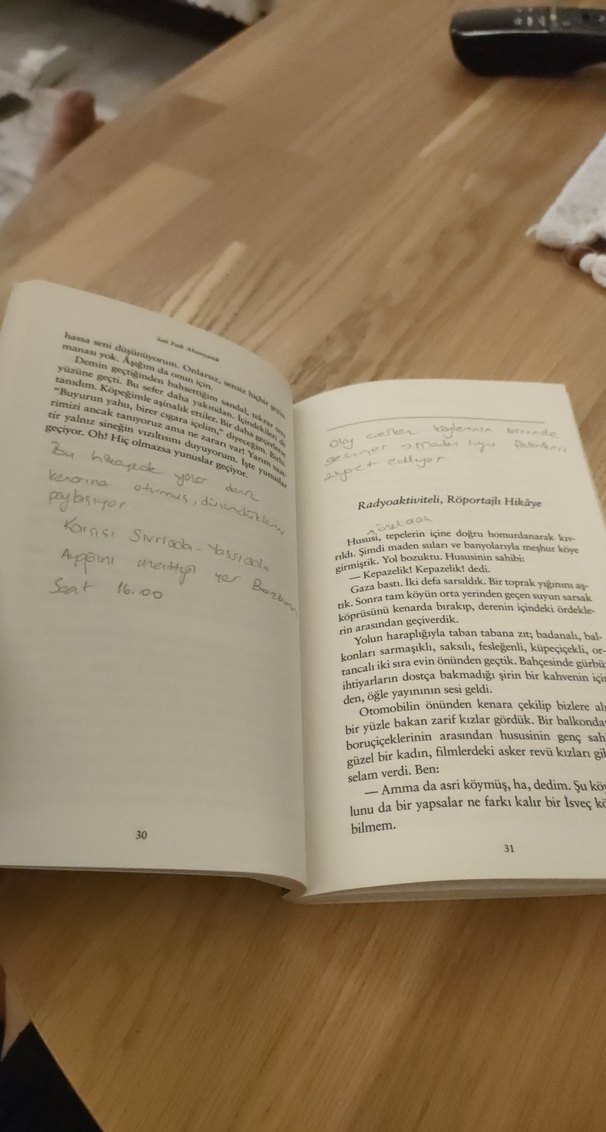 Sait Faik Abasıyanık
hassa seni düşünüyorum. Onlarsız, sensiz hiçbir şeyin
manası yok. Âşığım da onun için.
Demin geçtiğinden bahsettiğim sandal, tekrar
yüzüne geçti. Bu sefer daha yakından. İçindekileri de
tanıdım. Köpeğimle aşinalık ettiler. Bir daha geçerlerse
“Buyurun yahu, birer cıgara içelim,” diyeceğim. Birbi-
rimizi ancak tanıyoruz ama ne zararı var! Yarım saat-
tir yalnız sineğin vızıltısını duyuyorum. İşte yunuslar
geçiyor. Oh! Hiç olmazsa yunuslar geçiyor.
Bu hikayede yazar deniz
kenarına oturmuş, düşündüklerini
paylaşıyor
Karşısı Sivriada - Yassıada
Ayağını uzattığı yer Bozburun
Saat 16.00
30
Olay köylerinin birinde
geçiyor maden suyu
ziyaret ediliyor
Radyoaktiviteli, Röportajlı Hikâye
özel araç
Hususi, tepelerin içine doğru homurdanarak kıv-
rıldı. Şimdi maden suları ve banyolarıyla meşhur köye
girmiştik. Yol bozuktu. Hususinin sahibi:
— Kepazelik! Kepazelik! dedi.
Gaza bastı. İki defa sarsıldık. Bir toprak yığınını aş-
tık. Sonra tam köyün orta yerinden geçen suyun sarsak
köprüsünü kenarda bırakıp, derenin içindeki ördekle-
rin arasından geçiverdik.
Yolun haraplığıyla taban tabana zıt; badanalı, bal-
konları sarmaşıklı, saksılı, fesleğenli, küpeçiçekli, or-
tancalı iki sıra evin önünden geçtik. Bahçesinde gürbüz
ihtiyarların dostça bakmadığı şirin bir kahvenin için
den, öğle yayınının sesi geldi.
Otomobilin önünden kenara çekilip bizlere
bir yüzle bakan zarif kızlar gördük. Bir balkonda
boruçiçeklerinin arasından hususinin genç
güzel bir kadın, filmlerdeki asker revü kızları gib
selam verdi. Ben:
— Amma da asri köymüş, ha, dedim. Şu
lunu da bir yapsalar ne farkı kalır bir İsveç
bilmem.
31